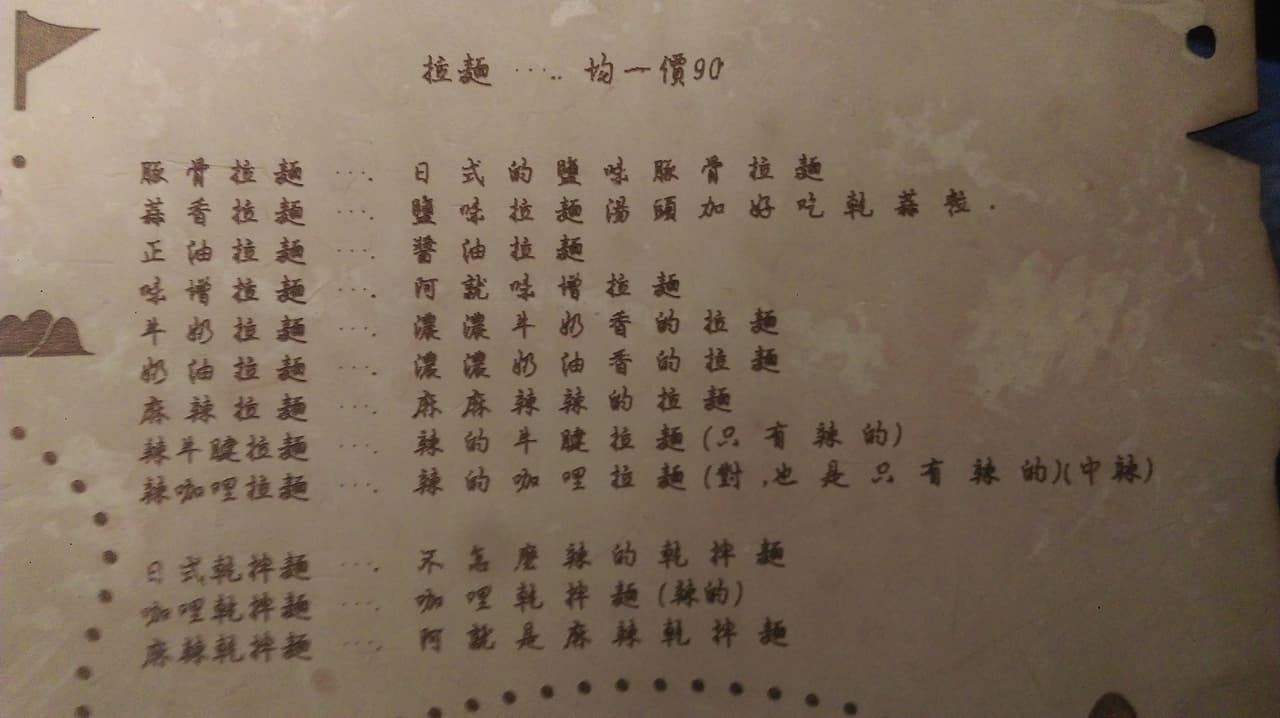 拉麵 ‧‧‧‧‧ 均一價90
豚骨拉麵 ‧‧‧‧ 日式的鹽味豚骨拉麵
蒜香拉麵 ‧‧‧‧ 鹽味拉麵湯頭加好吃乾蒜粒.
正油拉麵 ‧‧‧‧ 醬油拉麵
味增拉麵 ‧‧‧‧ 阿就味增拉麵
牛奶拉麵 ‧‧‧‧ 濃濃牛奶香的拉麵
奶油拉麵 ‧‧‧‧ 濃濃奶油香的拉麵
麻辣拉麵 ‧‧‧‧ 麻麻辣辣的拉麵
辣牛腱拉麵 ‧‧‧‧ 辣的牛腱拉麵(只有辣的)
辣咖哩拉麵 ‧‧‧‧ 辣的咖哩拉麵(對,也是只有辣的)(中辣)
日式乾拌麵 ‧‧‧‧ 不怎麼辣的乾拌麵
咖哩乾拌麵 ‧‧‧‧ 咖哩乾拌麵(辣的)
麻辣乾拌麵 ‧‧‧‧ 阿就是麻辣乾拌麵